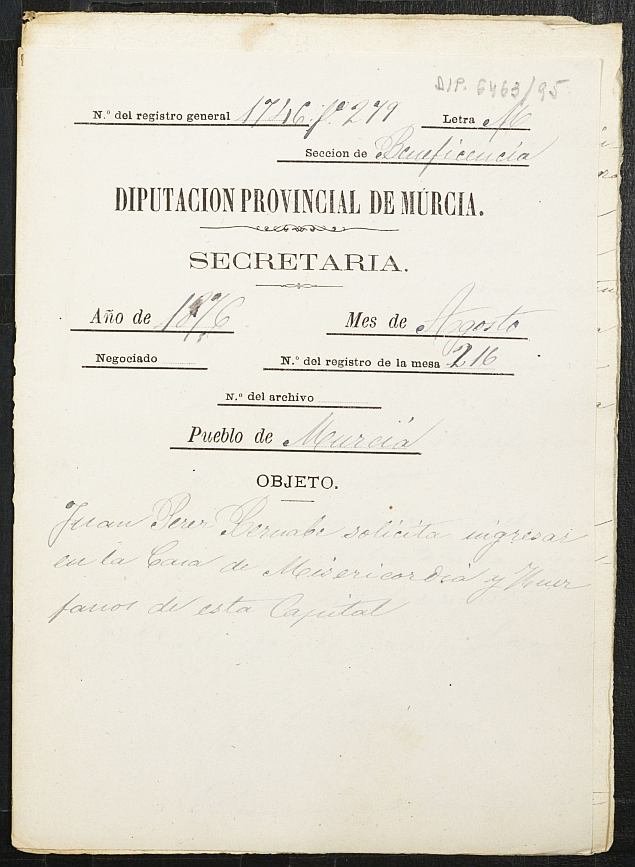 DIP. 6463/95
N.º del registro general 1746. fº 279 Letra M
Seccion de Beneficencia
DIPUTACION PROVINCIAL DE MÚRCIA.
SECRETARIA.
Año de 1876 Mes de Agosto
Negociado N.º del registro de la mesa 216
N.º del archivo
Pueblo de Murcia
OBJETO.
Juan Perez Bernabe solicita ingresar
en la Casa de Misericordia y Huer
fanos de esta Capital